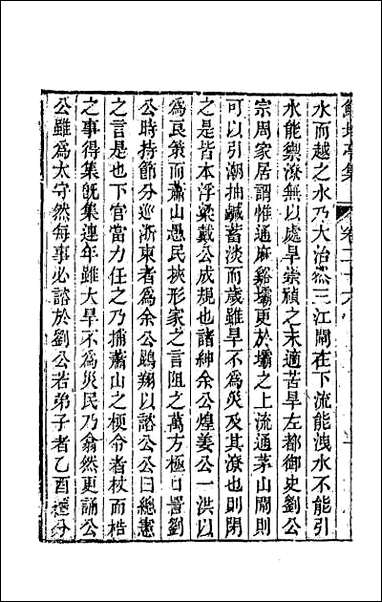 鮚埼亭集 卷二十六
水而越之水乃大治然三江閘在下流能洩水不能引
水能禦潦無以處旱崇禎之末適苦旱左都御史劉公
宗周家居謂惟通麻谿壩更於壩之上流通茅山閘則
可以引潮抽鹹蓄淡而歲雖旱不為災及其潦也則閉
之是皆本浮梁戴公成規也諸紳余公煌姜公一洪以
為良策而蕭山愚民挾形家之言阻之萬方極口詈劉
公時持節分巡浙東者為余公鵾翔以諮公公曰總憲
之言是也下官當力任之乃捕蕭山之梗令者杖而梏
之事得集既集連年雖大旱不為災民乃翕然更誦公
公雖為太守然每事必諮於劉公若弟子者乙酉分